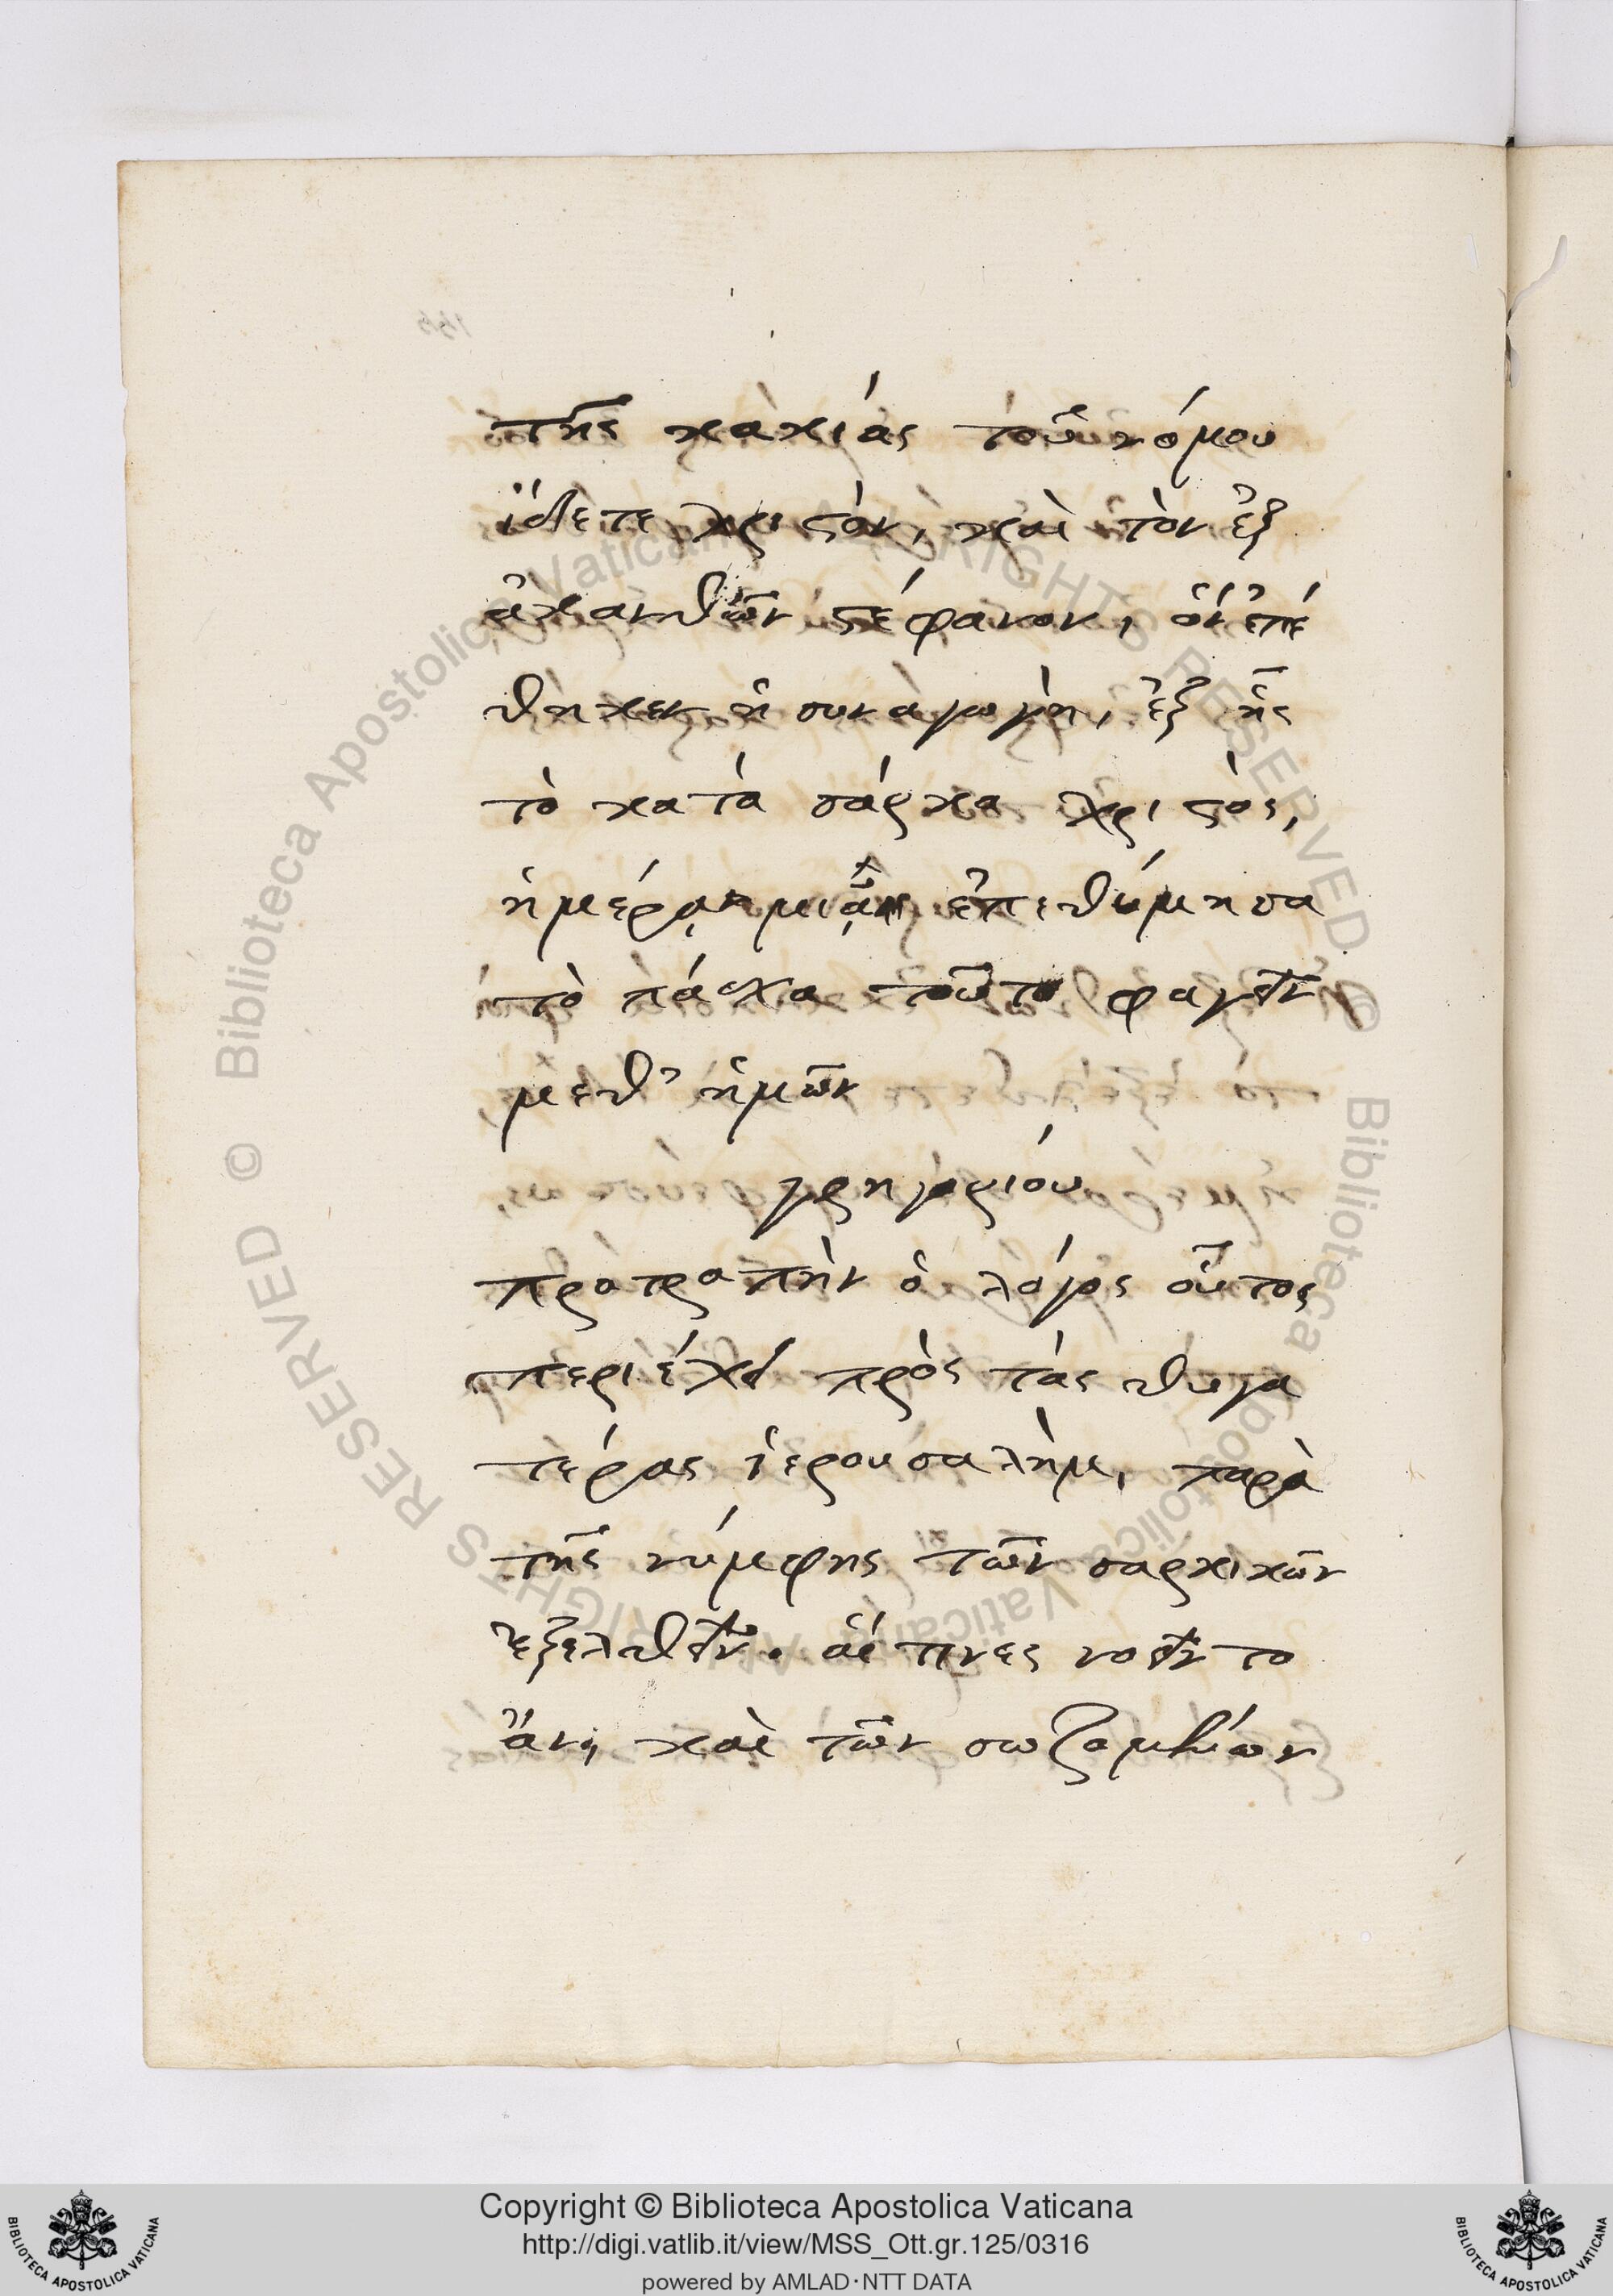 τῆς κακίας τοῦ νόμου
ἴδετε χριστὸν, καὶ τὸν ἐξ
ἀκανθῶν στέφανον, ὃν ἐπέ
θηκεν ἡ συναγωγὴ, ἐξ ἧς
τὸ κατὰ σάρκα χριστὸς,
ἡμέρᾳ μιᾷ ἐπεθύμησα
τὸ πάσχα τοῦτο φαγεῖν
μεθ' ἡμῶν
γρηγορίου
προτροπὴν ὁ λόγος οὗτος
περιέχει πρὸς τὰς θυγα
τέρας ἱερουσαλὴμ, παρὰ
τῆς νύμφης τῶν σαρκικῶν
ἐξελθεῖν. αἵτινες νοεῖντο
ἂν, καὶ τῶν σωζομένων
Biblioteca Apostolica Vaticana
ALL RIGHTS RESERVED ©
Biblioteca Apostolica Vaticana
ALL RIGHTS RESERVED ©
Copyright © Biblioteca Apostolica Vaticana
http://digi.vatlib.it/view/MSS_Ott.gr.125/0316
powered by AMLAD·NTT DATA
BIBLIOTECA APOSTOLICA VATICANA
BIBLIOTECA APOSTOLICA VATICANA